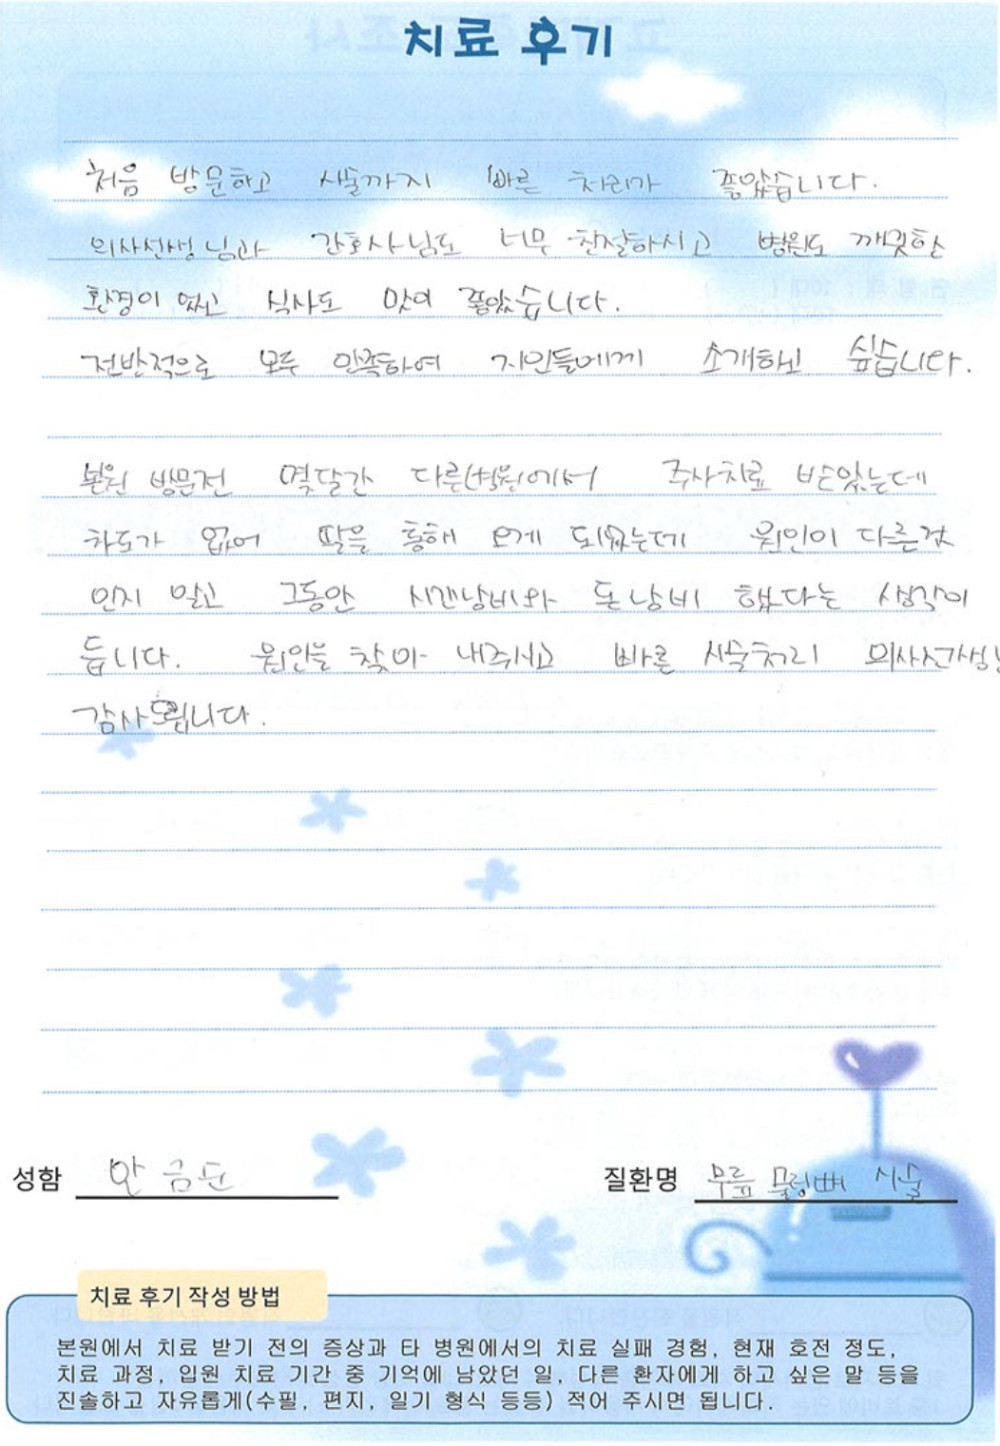 치료 후기
처음 방문하고 시술까지 빠른 처리가 좋았습니다.
의사선생님과 간호사님도 너무 친절하시고 병원도 깨끗한
환경이 였고 식사도 맛이 좋았습니다.
전반적으로 모두 만족하여 지인들에게 소개하고 싶습니다.
본원 방문전 몇달간 다른병원에서 주사치료 받았는데
차도가 없어 딸을 통해 오게 되었는데 원인이 다른것
인지 말고 그동안 시간낭비와 돈낭비 했다는 생각이
듭니다. 원인을 찾아 내주시고 빠른 시술처리 의사선생님
감사드립니다.
성함 안금순 질환명 무릎 물렁뼈 시술
치료 후기 작성 방법
본원에서 치료 받기 전의 증상과 타 병원에서의 치료 실패 경험, 현재 호전 정도,
치료 과정, 입원 치료 기간 중 기억에 남았던 일, 다른 환자에게 하고 싶은 말 등을
진솔하고 자유롭게(수필, 편지, 일기 형식 등등) 적어 주시면 됩니다.